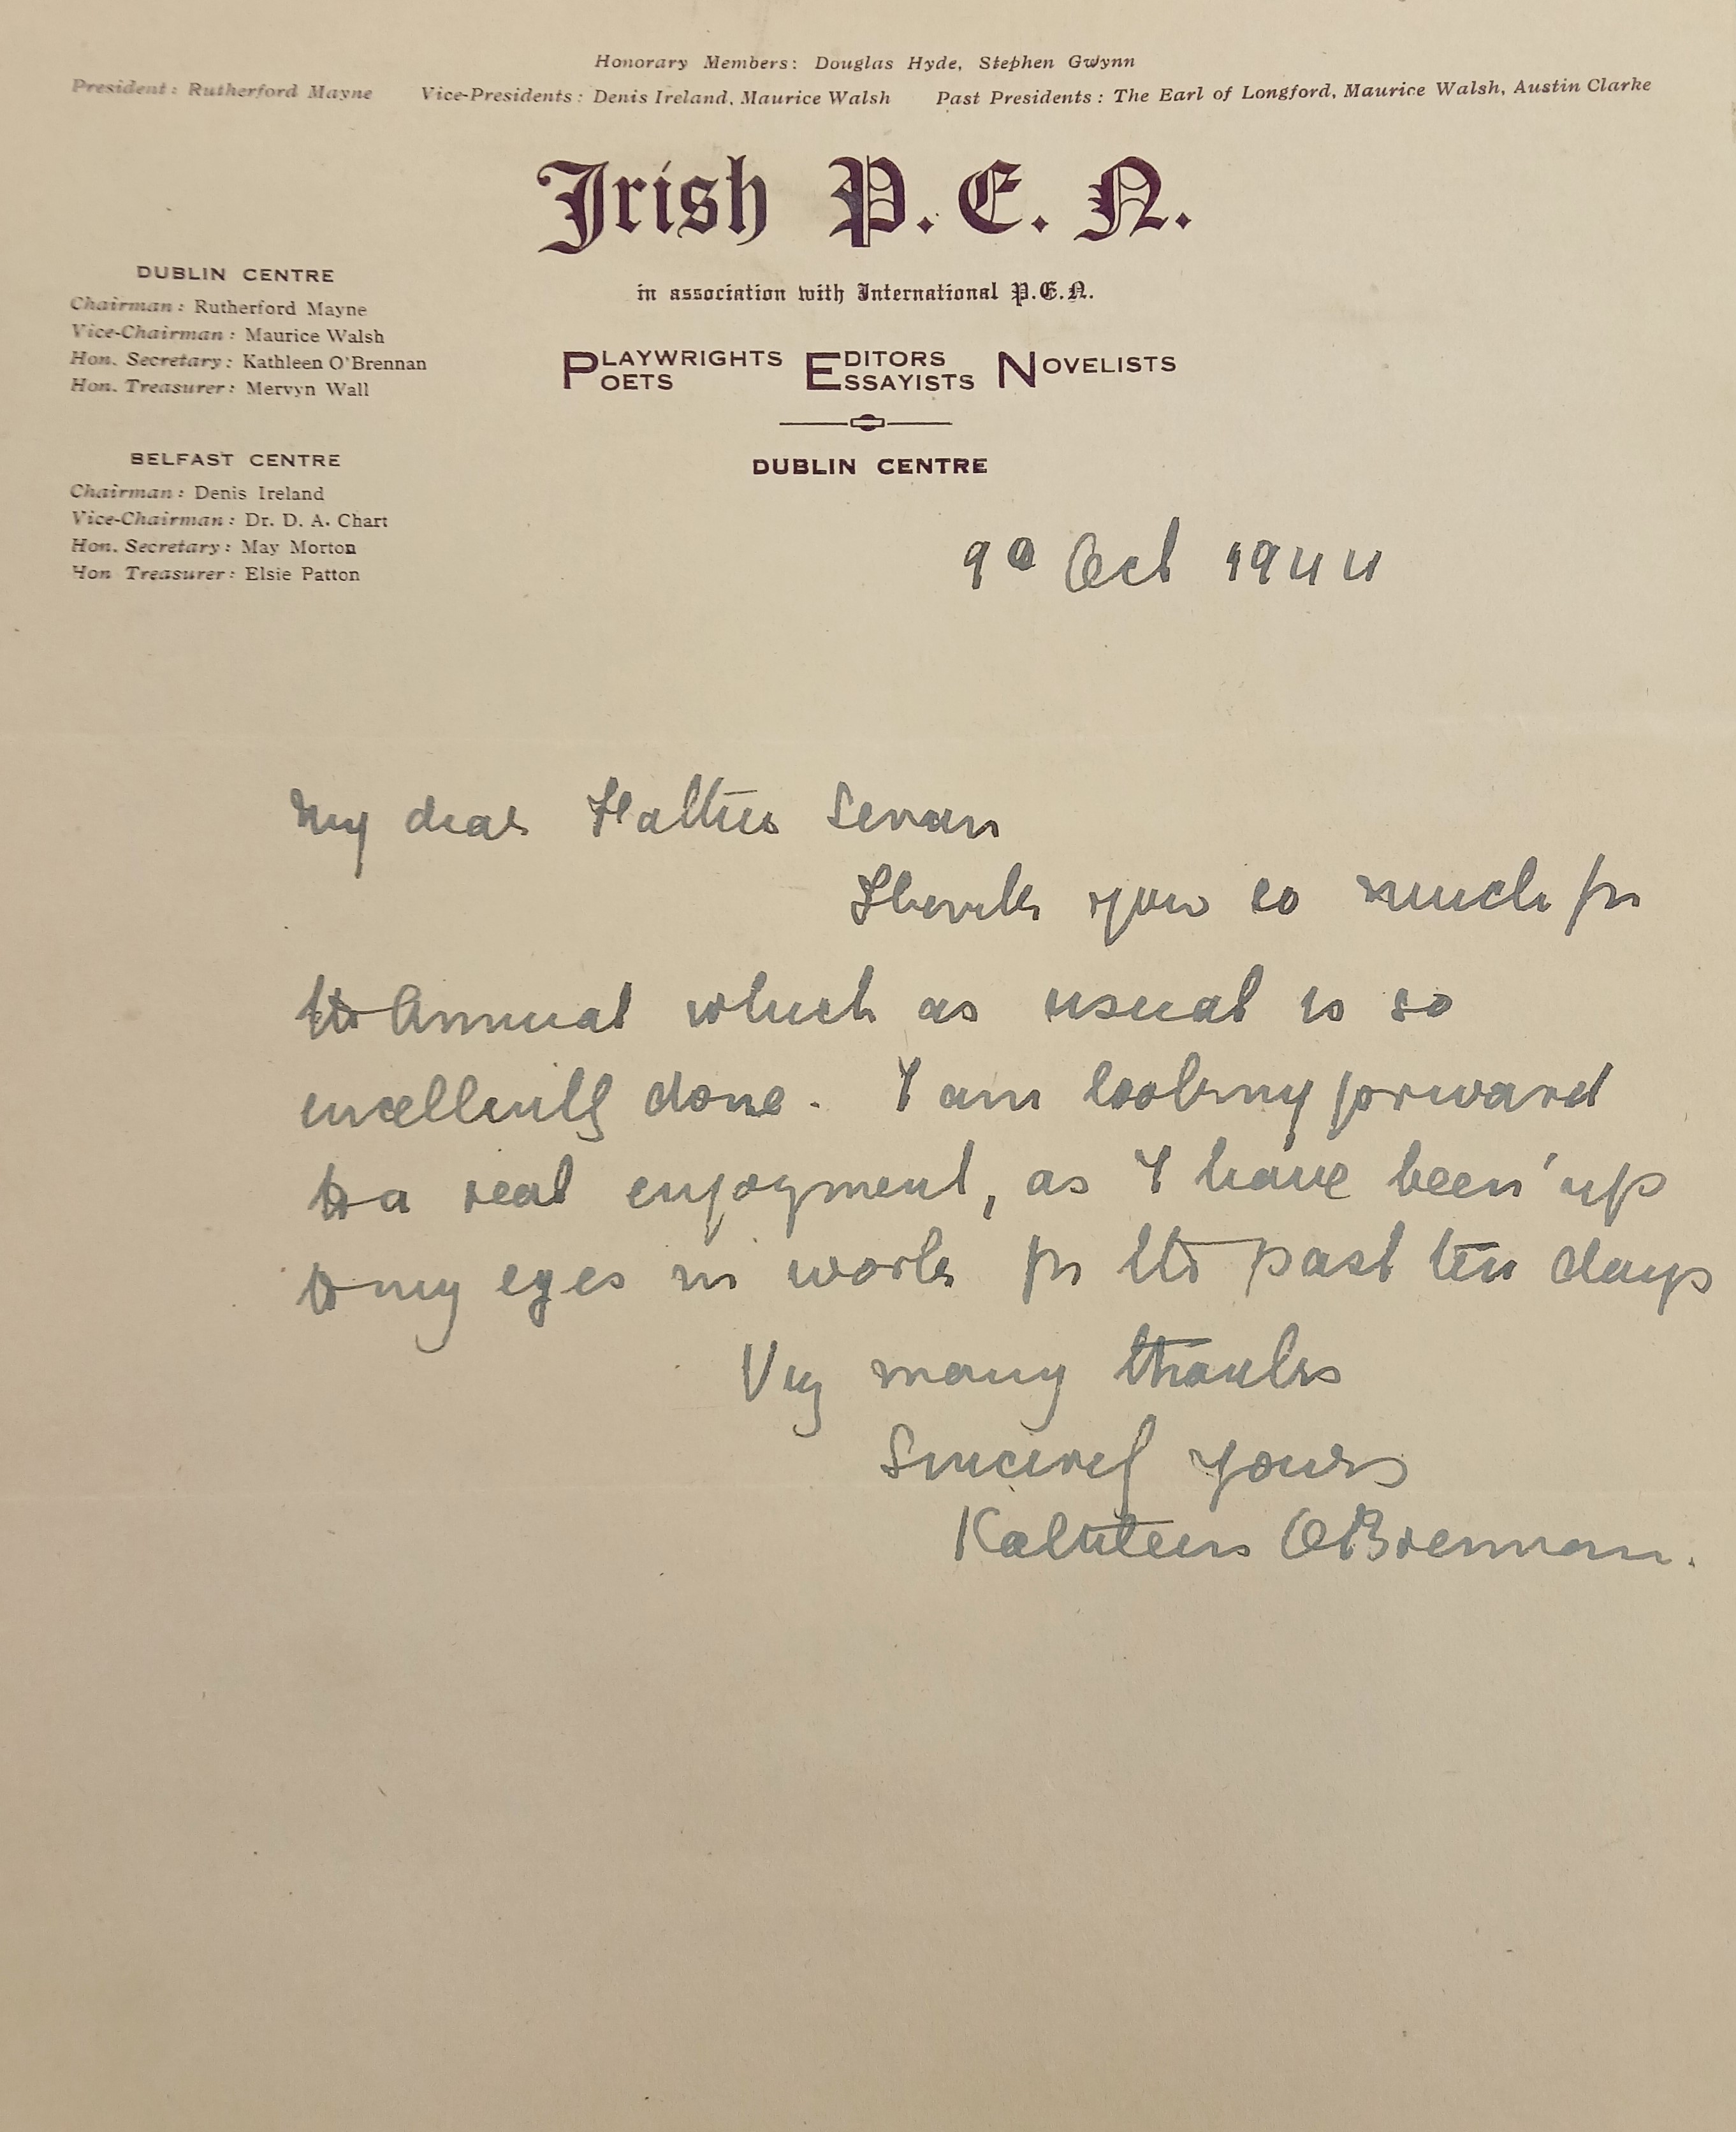 Honorary Members: Douglas Hyde, Stephen Gwynn
President: Rutherford Mayne Vice-Presidents: Denis Ireland, Maurice Walsh Past Presidents: The Earl of Longford, Maurice Walsh, Austin Clarke
Irish P.E.N.
in association with International P.E.N.
PLAYWRIGHTS POETS EDITORS ESSAYISTS NOVELISTS
DUBLIN CENTRE
DUBLIN CENTRE
Chairman: Rutherford Mayne
Vice-Chairman: Maurice Walsh
Hon. Secretary: Kathleen O'Brennan
Hon. Treasurer: Mervyn Wall
BELFAST CENTRE
Chairman: Denis Ireland
Vice-Chairman: Dr. D. A. Chart
Hon. Secretary: May Morton
Hon Treasurer: Elsie Patton
9 Oct 1944
My dear Father Senan
Thank you so much for
the Annual which as usual is so
excellently done. I am looking forward
to a real enjoyment, as I have been up
to my eyes in work for the past ten days
Very many thanks
Sincerely yours
Kathleen O'Brennan.